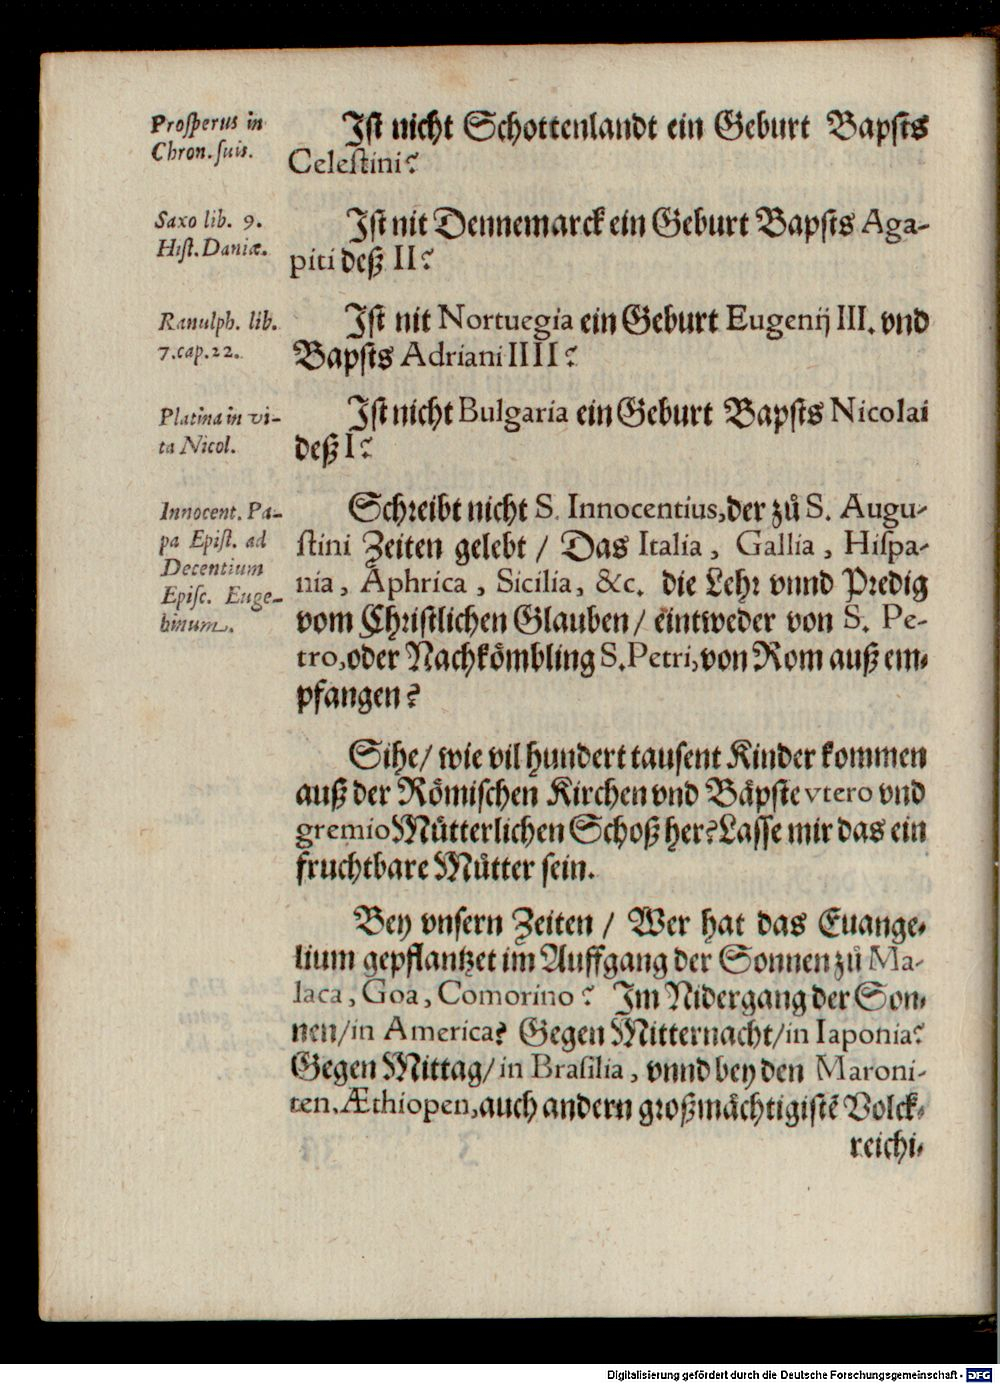 Prosperus in
Chron. suis.
Ist nicht Schottenlandt ein Geburt Bapsts
Celestini?
Saxo lib. 9.
Hist. Daniæ.
Ist nit Dennemarck ein Geburt Bapsts Aga-
piti deß II?
Ranulph. lib.
7. cap. 22.
Ist nit Nortuegia ein Geburt Eugenij III. vnd
Bapsts Adriani IIII?
Platina in vi-
ta Nicol.
Ist nicht Bulgaria ein Geburt Bapsts Nicolai
deß I?
Innocent. Pa-
pa Epist. ad
Decentium
Episc. Euge-
binum.
Schreibt nicht S. Innocentius, der zů S. Augu-
stini Zeiten gelebt / Das Italia, Gallia, Hispa-
nia, Aphrica, Sicilia, &c. die Lehr vnnd Predig
vom Christlichen Glauben / eintweder von S. Pe-
tro, oder Nachkömbling S. Petri, von Rom auß em-
pfangen?
Sihe / wie vil hundert tausent Kinder kommen
auß der Römischen Kirchen vnd Bäpste vtero vnd
gremio Mütterlichen Schoß her? Lasse mir das ein
fruchtbare Mütter sein.
Bey vnsern Zeiten / Wer hat das Euange-
lium gepflantzet im Auffgang der Sonnen zů Ma-
laca, Goa, Comorino? Im Nidergang der Son-
nen / in America? Gegen Mitternacht / in Iaponia?
Gegen Mittag / in Brasilia, vnnd bey den Maroni-
ten, Æthiopen, auch andern großmächtigistē Volck-
reichi-
Digitalisierung gefördert durch die Deutsche Forschungsgemeinschaft - DFG